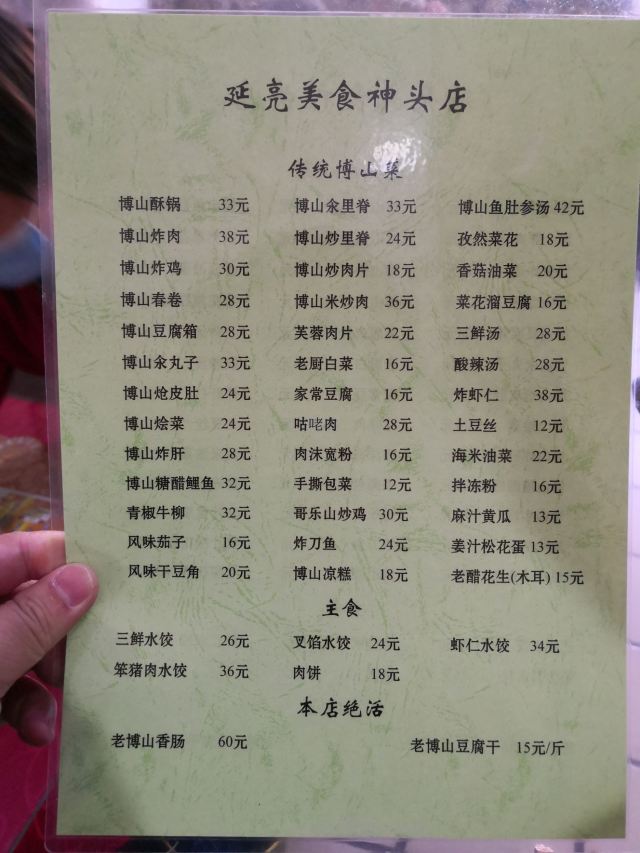 延亮美食神头店
传统博山菜
博山酥锅 33元 博山汆里脊 33元 博山鱼肚参汤 42元
博山炸肉 38元 博山炒里脊 24元 孜然菜花 18元
博山炸鸡 30元 博山炒肉片 18元 香菇油菜 20元
博山春卷 28元 博山米炒肉 36元 菜花溜豆腐 16元
博山豆腐箱 28元 芙蓉肉片 22元 三鲜汤 28元
博山汆丸子 33元 老厨白菜 16元 酸辣汤 28元
博山炝皮肚 24元 家常豆腐 16元 炸虾仁 38元
博山烩菜 24元 咕咾肉 28元 土豆丝 12元
博山炸肝 28元 肉沫宽粉 16元 海米油菜 22元
博山糖醋鲤鱼 32元 手撕包菜 12元 拌冻粉 16元
青椒牛柳 32元 哥乐山炒鸡 30元 麻汁黄瓜 13元
风味茄子 16元 炸刀鱼 24元 姜汁松花蛋 13元
风味干豆角 20元 博山凉糕 18元 老醋花生(木耳) 15元
主食
三鲜水饺 26元 叉馅水饺 24元 虾仁水饺 34元
笨猪肉水饺 36元 肉饼 18元
本店绝活
老博山香肠 60元 老博山豆腐干 15元/斤